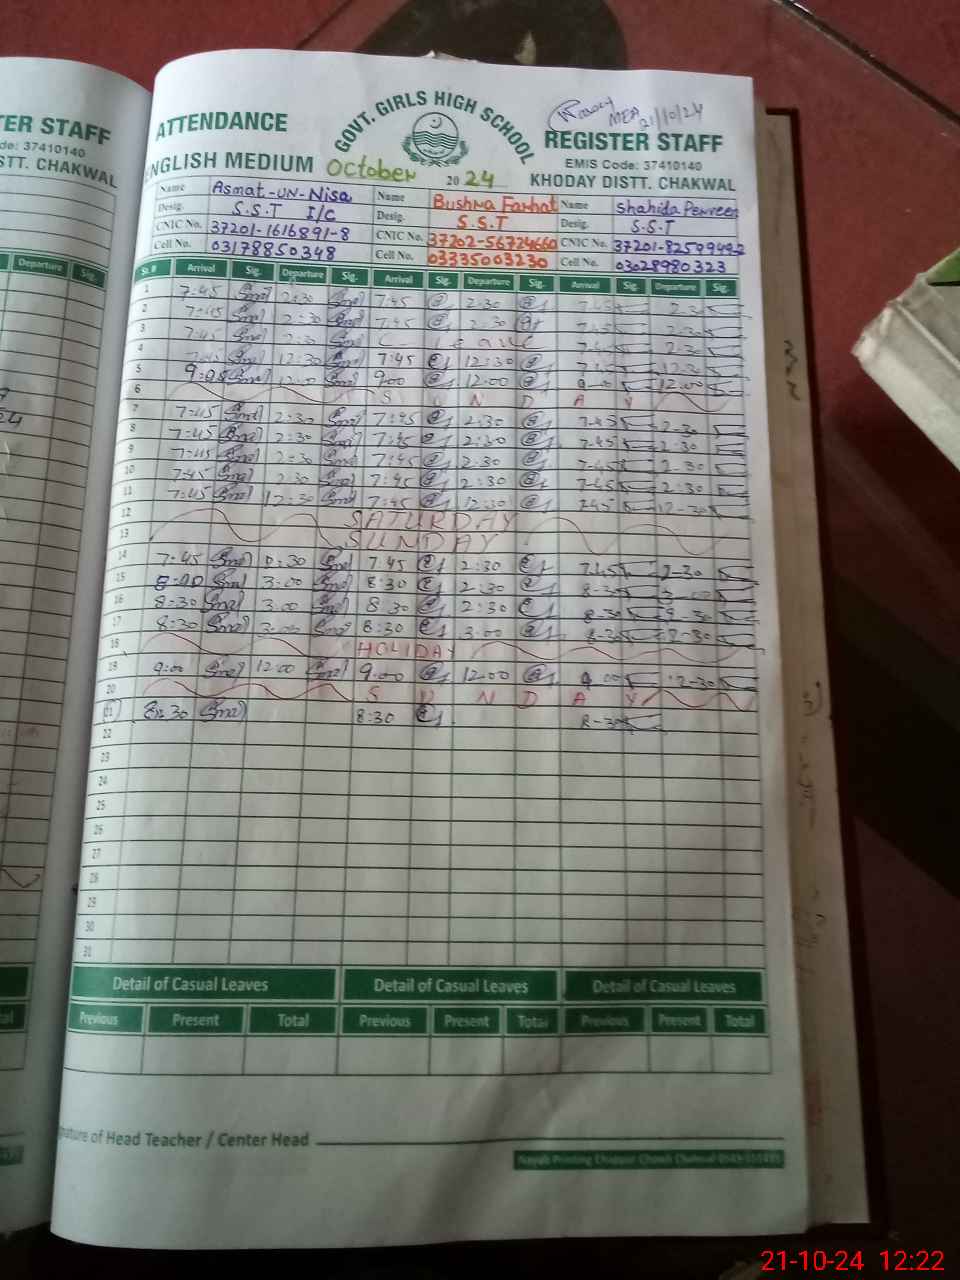 TER STAFF
de: 37410140
STT. CHAKWAL
Departure Sig.
ATTENDANCE
GOVT. GIRLS HIGH SCHOOL
MEA 21/10/24
REGISTER STAFF
EMIS Code: 37410140
ENGLISH MEDIUM October 2024 KHODAY DISTT. CHAKWAL
Name Asmat-un-Nisa Name Bushra Farhat Name Shahida Perveen
Desig. S.S.T I/C Desig. S.S.T Desig. S.S.T
CNIC No. 37201-1616891-8 CNIC No. 37202-56724660 CNIC No.
Cell No. 03178850348 Cell No. 03335003230 Cell No. 03028980323
Sr. # Arrival Sig. Departure Sig. Arrival Sig. Departure Sig. Arrival Sig. Departure Sig.
1 7:45 2:30 7:45 2:30 7:45 2:30
2 7:45 2:30 7:45 2:30 7:45 2-30
3 7:45 2:30 C- leave 7:45 2-30
4 7:45 12:30 7:45 12:30 7:45 12:30
5 12:00 9:00 12:00 9-00 12:00
6 S U N D A Y
7 7:45 2:30 7:45 2:30 7-45 2-30
8 7:45 2:30 7:45 2:30 7-45 2:30
9 7:45 2:30 7:45 2:30 7-45 2-30
10 7:45 2:30 7:45 2:30 7-45 2:30
11 7:45 12:30 7:45 12:30 745 12-30
12 SATURDAY
13 SUNDAY
14 7:45 7:45 2:30 7:45 2-30
15 3:00 8:30 2:30 8-30 3-00
16 8:30 3:00 8:30 2:30 8-30 2-30
17 8:30 3:00 8:30 3:00 8-30 2-30
18 HOLIDAY
19 9:00 12:00 9:00 12:00 9 00 12-30
20 S U N D A Y
21 8:30 8:30 8-30
22
23
24
25
26
27
28
29
30
31
Detail of Casual Leaves Detail of Casual Leaves Detail of Casual Leaves
Previous Present Total Previous Present Total Previous Present Total
gnature of Head Teacher / Center Head
21-10-24 12:22